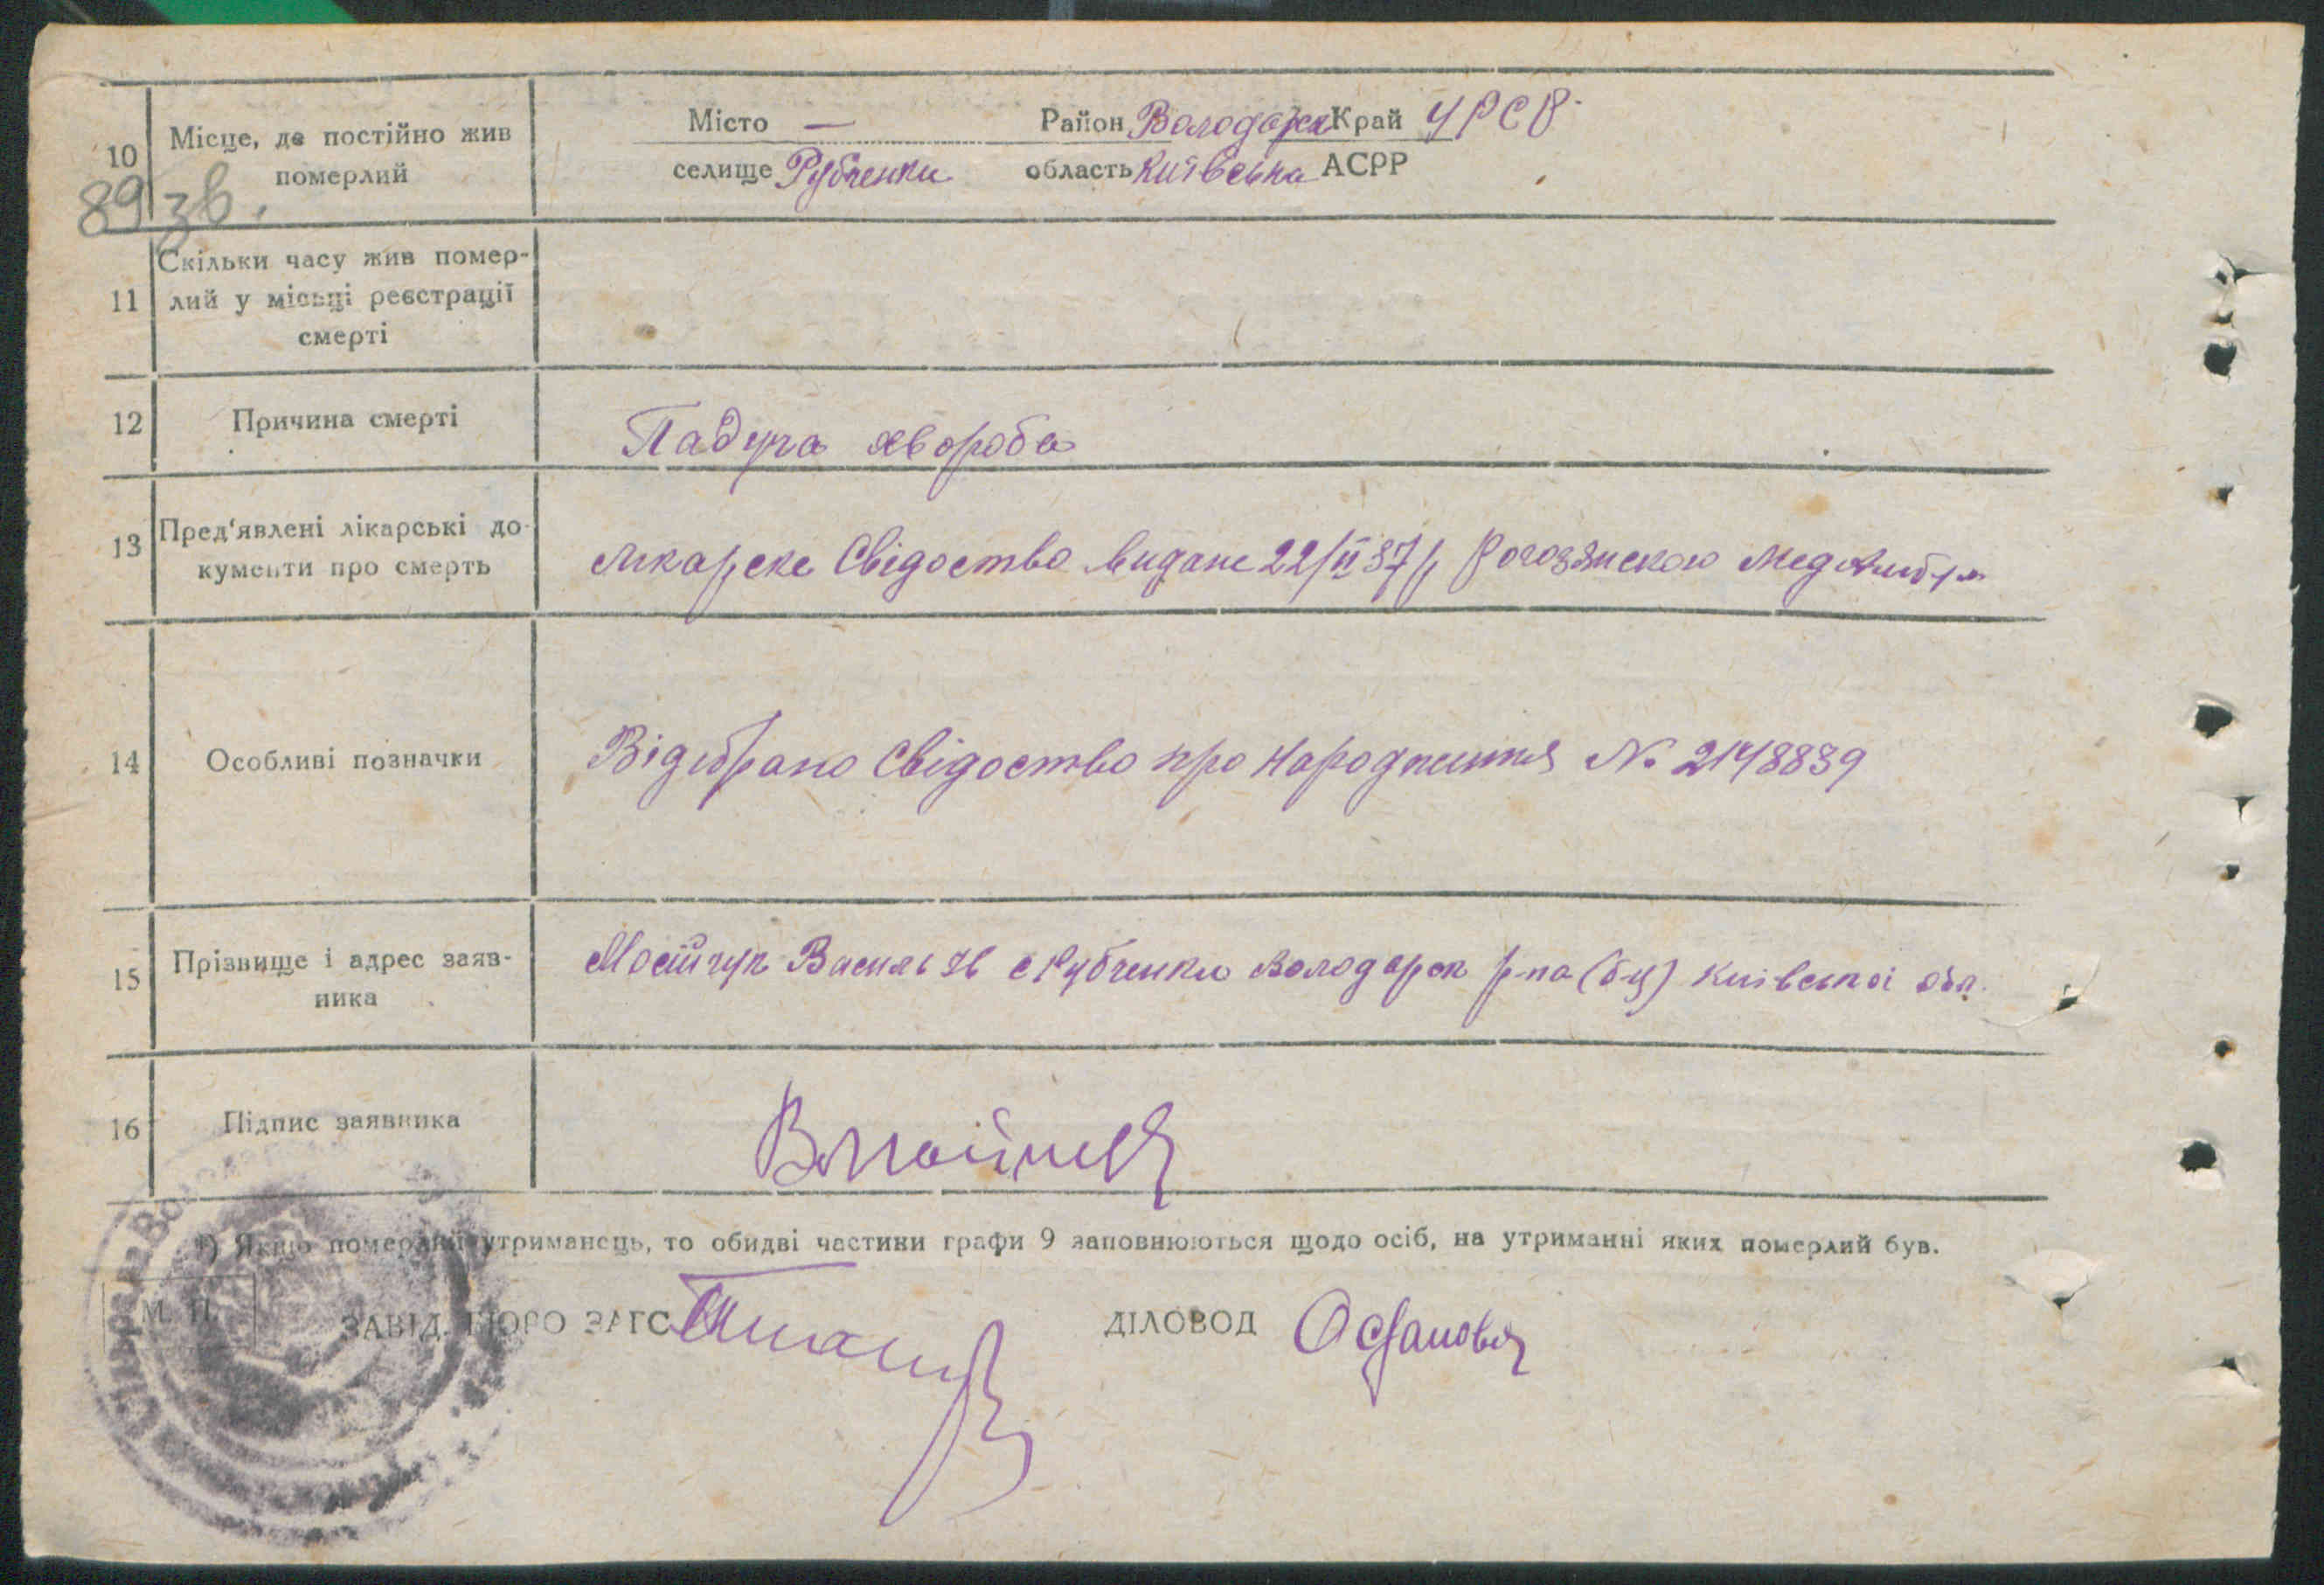 Місто — Район Володарск Край УРСР
10 Місце, де постійно жив
померлий
селище Рубченки область Київська АСРР
89 зв.
11 Скільки часу жив помер-
лий у місьці реєстрації
смерті
12 Причина смерті
Падуча хвороба
13 Пред'явлені лікарські до-
кументи про смерть
Лікарске Свідоство видане 22/II 37 р
14 Особливі позначки
Відибрано Свідоство про Народження № 2148839
15 Прізвище і адрес заяв-
ника
Василь с Рубченки Володарск р-на (бц) Київської обл.
16 Підпис заявника
*) Якщо померлий утриманець, то обидві частини графи 9 заповнюються щодо осіб, на утриманні яких померлий був.
М. П.
ЗАВІД. БЮРО ЗАГС ДІЛОВОД